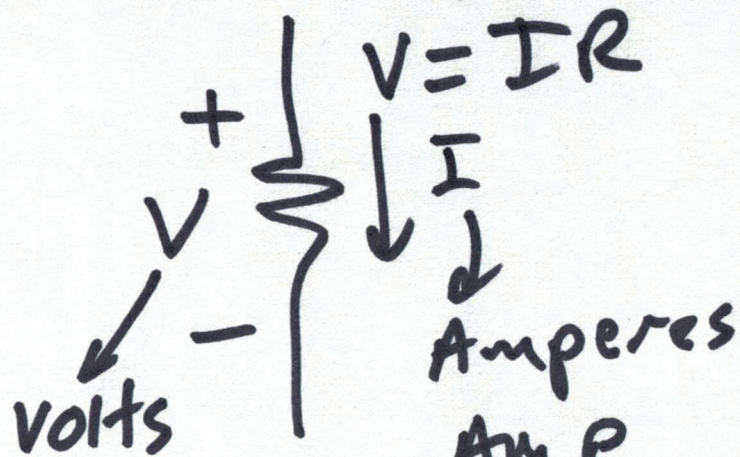 V = IR
+
I
V
-
Amperes
volts
Amp